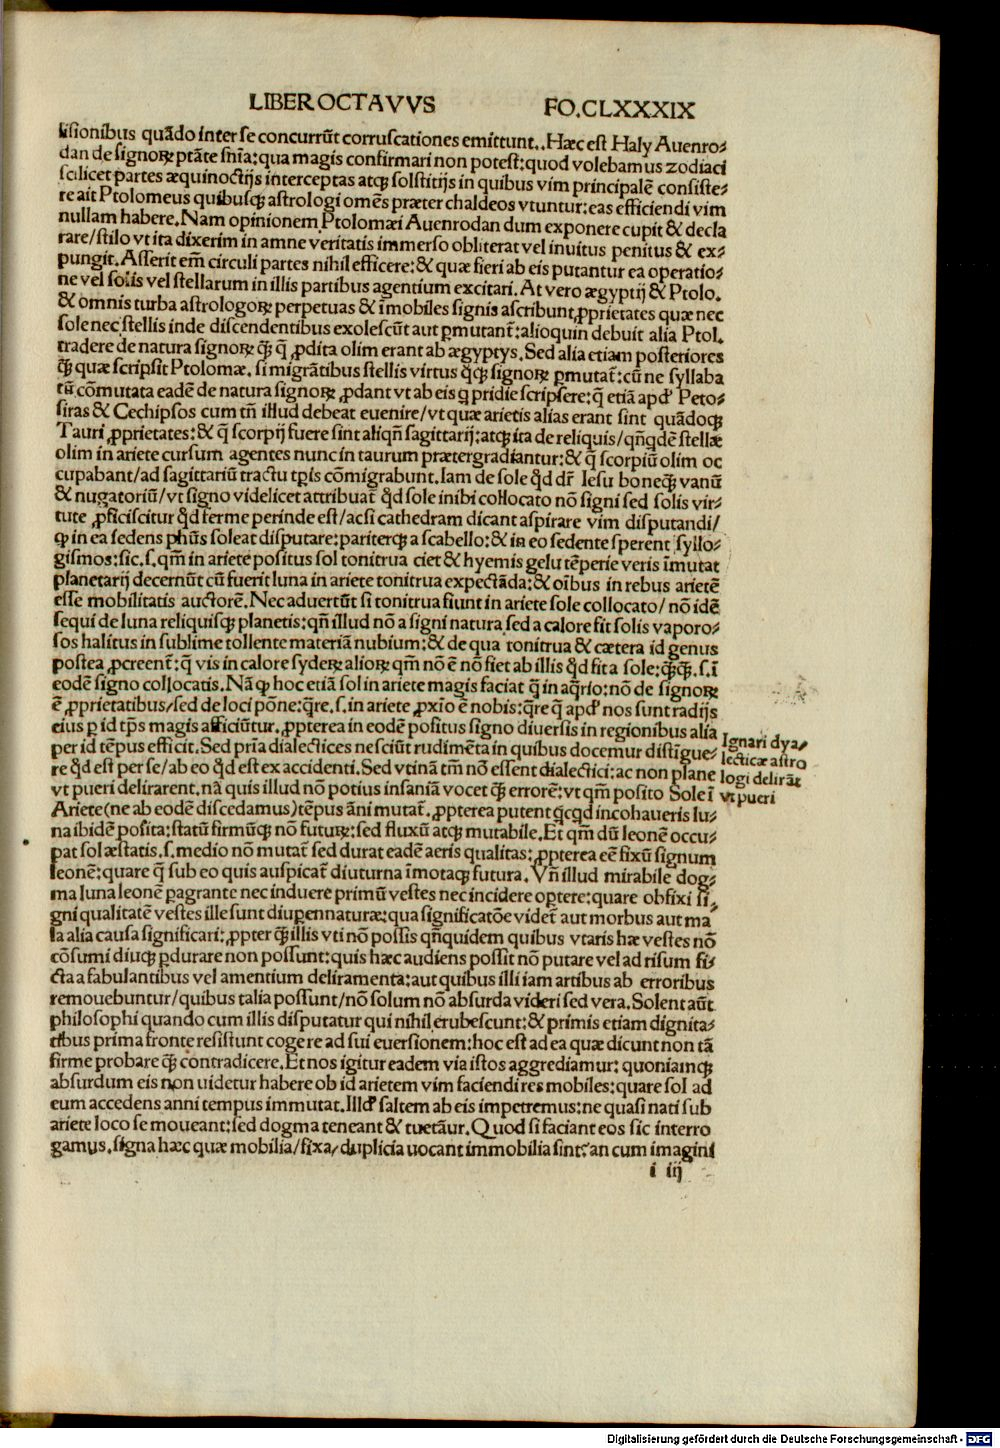 LIBER OCTAVVS FO.CLXXXIX
lisionibus quãdo inter se concurrũt corruscationes emittunt..Hæc est Haly Auenro⸗
dan de signoꝝ ptãte snĩa:qua magis confirmari non potest:quod volebamus zodiaci
scilicet partes æquinoctijs interceptas atqꝫ solstitijs in quibus vim principalẽ consiste⸗
re ait Ptolomeus quibusqꝫ astrologi omẽs præter chaldeos vtuntur:eas efficiendi vim
nullam habere.Nam opinionem Ptolomæi Auenrodan dum exponere cupit & decla
rare/stilo vt ita dixerim in amne veritatis immerso obliterat vel inuitus penitus & ex⸗
pungit.Asserit em̃ circuli partes nihil efficere:& quæ fieri ab eis putantur ea operatio⸗
ne vel solis vel stellarum in illis partibus agentium excitari.At vero ægyptij & Ptolo.
& omnis turba astrologoꝝ perpetuas & ĩmobiles signis ascribunt ꝓprietates quæ nec
sole nec stellis inde discendentibus exolescũt aut ꝑmutant̃:alioquin debuit alia Ptol.
tradere de natura signoꝝ q̃ꝫ q̃ ꝓdita olim erant ab ægyptys.Sed alia etiam posteriores
q̃ꝫ quæ scripsit Ptolomæ.si migrãtibus stellis virtus q̃qꝫ signoꝝ ꝑmutat̃:cũ ne syllaba
tũ cõmutata eadẽ de natura signoꝝ ꝓdant vt ab eis q pridie scripsere:q̃ etiã apd' Peto⸗
siras & Cechipsos cum tñ illud debeat euenire/vt quæ arietis alias erant sint quãdoqꝫ
Tauri ꝓprietates:& q̃ scorpij fuere sint aliqñ sagittarij:atqꝫ ita de reliquis/qñqdẽ stellæ
olim in ariete cursum agentes nunc in taurum prætergradiantur:& q̃ scorpiũ olim oc
cupabant/ad sagittariũ tractu tp̃is cõmigrabunt.Iam de sole qd dr̃ Iesu boneqꝫ vanũ
& nugatoriũ/vt signo videlicet attribuat̃ qd sole inibi collocato nõ signi sed solis vir⸗
tute ꝓficiscitur qd ferme perinde est/acsi cathedram dicant aspirare vim disputandi/
ꝙ in ea sedens phũs soleat disputare:pariterqꝫ a scabello:& in eo sedente sperent syllo⸗
gismos:sic.s.qm̃ in ariete positus sol tonitrua ciet & hyemis gelu tẽperie veris ĩmutat
planetarij decernũt cũ fuerit luna in ariete tonitrua expectãda:& oĩbus in rebus arietẽ
esse mobilitatis auctorẽ.Nec aduertũt si tonitrua fiunt in ariete sole collocato/ nõ idẽ
sequi de luna reliquisqꝫ planetis:qñ illud nõ a signi natura sed a calore fit solis vaporo⸗
sos halitus in sublime tollente materiã nubium:& de qua tonitrua & cætera id genus
postea ꝓcreent̃:q̃ vis in calore syderꝝ alioꝝ qm̃ nõ ẽ nõ fiet ab illis qd fit a sole:q̃ꝫq̃ꝫ.s.ĩ
eodẽ signo collocatis.Nã ꝙ hoc etiã sol in ariete magis faciat q̃ in aq̃rio:nõ de signoꝝ
ẽ ꝓprietatibus/sed de loci põne:q̃re.s.in ariete ꝓxĩo ẽ nobis:q̃re q̃ apd' nos sunt radijs
eius ꝑ id tp̃s magis afficiũtur.ꝓpterea in eodẽ positus signo diuersis in regionibus alia
per id tẽpus efficit.Sed prĩa dialectices nesciũt rudimẽta in quibus docemur distĩgue⸗
re qd est per se/ab eo qd est ex accidenti.Sed vtinã tm̃ nõ essent dialectici:ac non plane
vt pueri delirarent.nã quis illud nõ potius insaniã vocet q̃ꝫ errorẽ:vt qm̃ posito Sole ĩ
Ariete(ne ab eodẽ discedamus)tẽpus ãni mutat̃.ꝓpterea putent qcqd incohaueris lu⸗
na ibidẽ posita:statũ firmũqꝫ nõ futuꝝ:sed fluxũ atqꝫ mutabile.Et qm̃ dũ leonẽ occu⸗
pat sol æstatis.s.medio nõ mutat̃ sed durat eadẽ aeris qualitas:ꝓpterea eẽ fixũ signum
leonẽ:quare q̃ sub eo quis auspicat̃ diuturna ĩmotaqꝫ futura.Vñ illud mirabile dog⸗
ma luna leonẽ ꝑagrante nec induere primũ vestes nec incidere optere:quare obfixi si⸗
gni qualitatẽ vestes ille sunt diuꝑennaturæ:qua significatõe videt̃ aut morbus aut ma
la alia causa significari:ꝓpter q̃ꝫ illis vti nõ possis qñquidem quibus vtaris hæ vestes nõ
cõsumi diuqꝫ ꝑdurare non possunt:quis hæc audiens possit nõ putare vel ad risum fi⸗
cta a fabulantibus vel amentium deliramenta:aut quibus illi iam artibus ab erroribus
remouebuntur/quibus talia possunt/nõ solum nõ absurda videri sed vera.Solent aũt
philosophi quando cum illis disputatur qui nihil erubescunt:& primis etiam dignita⸗
tibus prima fronte resistunt cogere ad sui euersionem:hoc est ad ea quæ dicunt non tã
firme probare q̃ꝫ contradicere.Et nos igitur eadem via istos aggrediamur: quoniamqꝫ
absurdum eis non uidetur habere ob id arietem vim faciendi res mobiles:quare sol ad
eum accedens anni tempus immutat.Illd' saltem ab eis impetremus:ne quasi nati sub
ariete loco se moueant:sed dogma teneant & tuetãur.Quod si faciant eos sic interro
gamus.signa hæc quæ mobilia/fixa/duplicia uocant immobilia sint:an cum imagini
i iij
Ignari dya⸗
lecticæ astro
logi delirãt
vt pueri
Digitalisierung gefördert durch die Deutsche Forschungsgemeinschaft - DFG